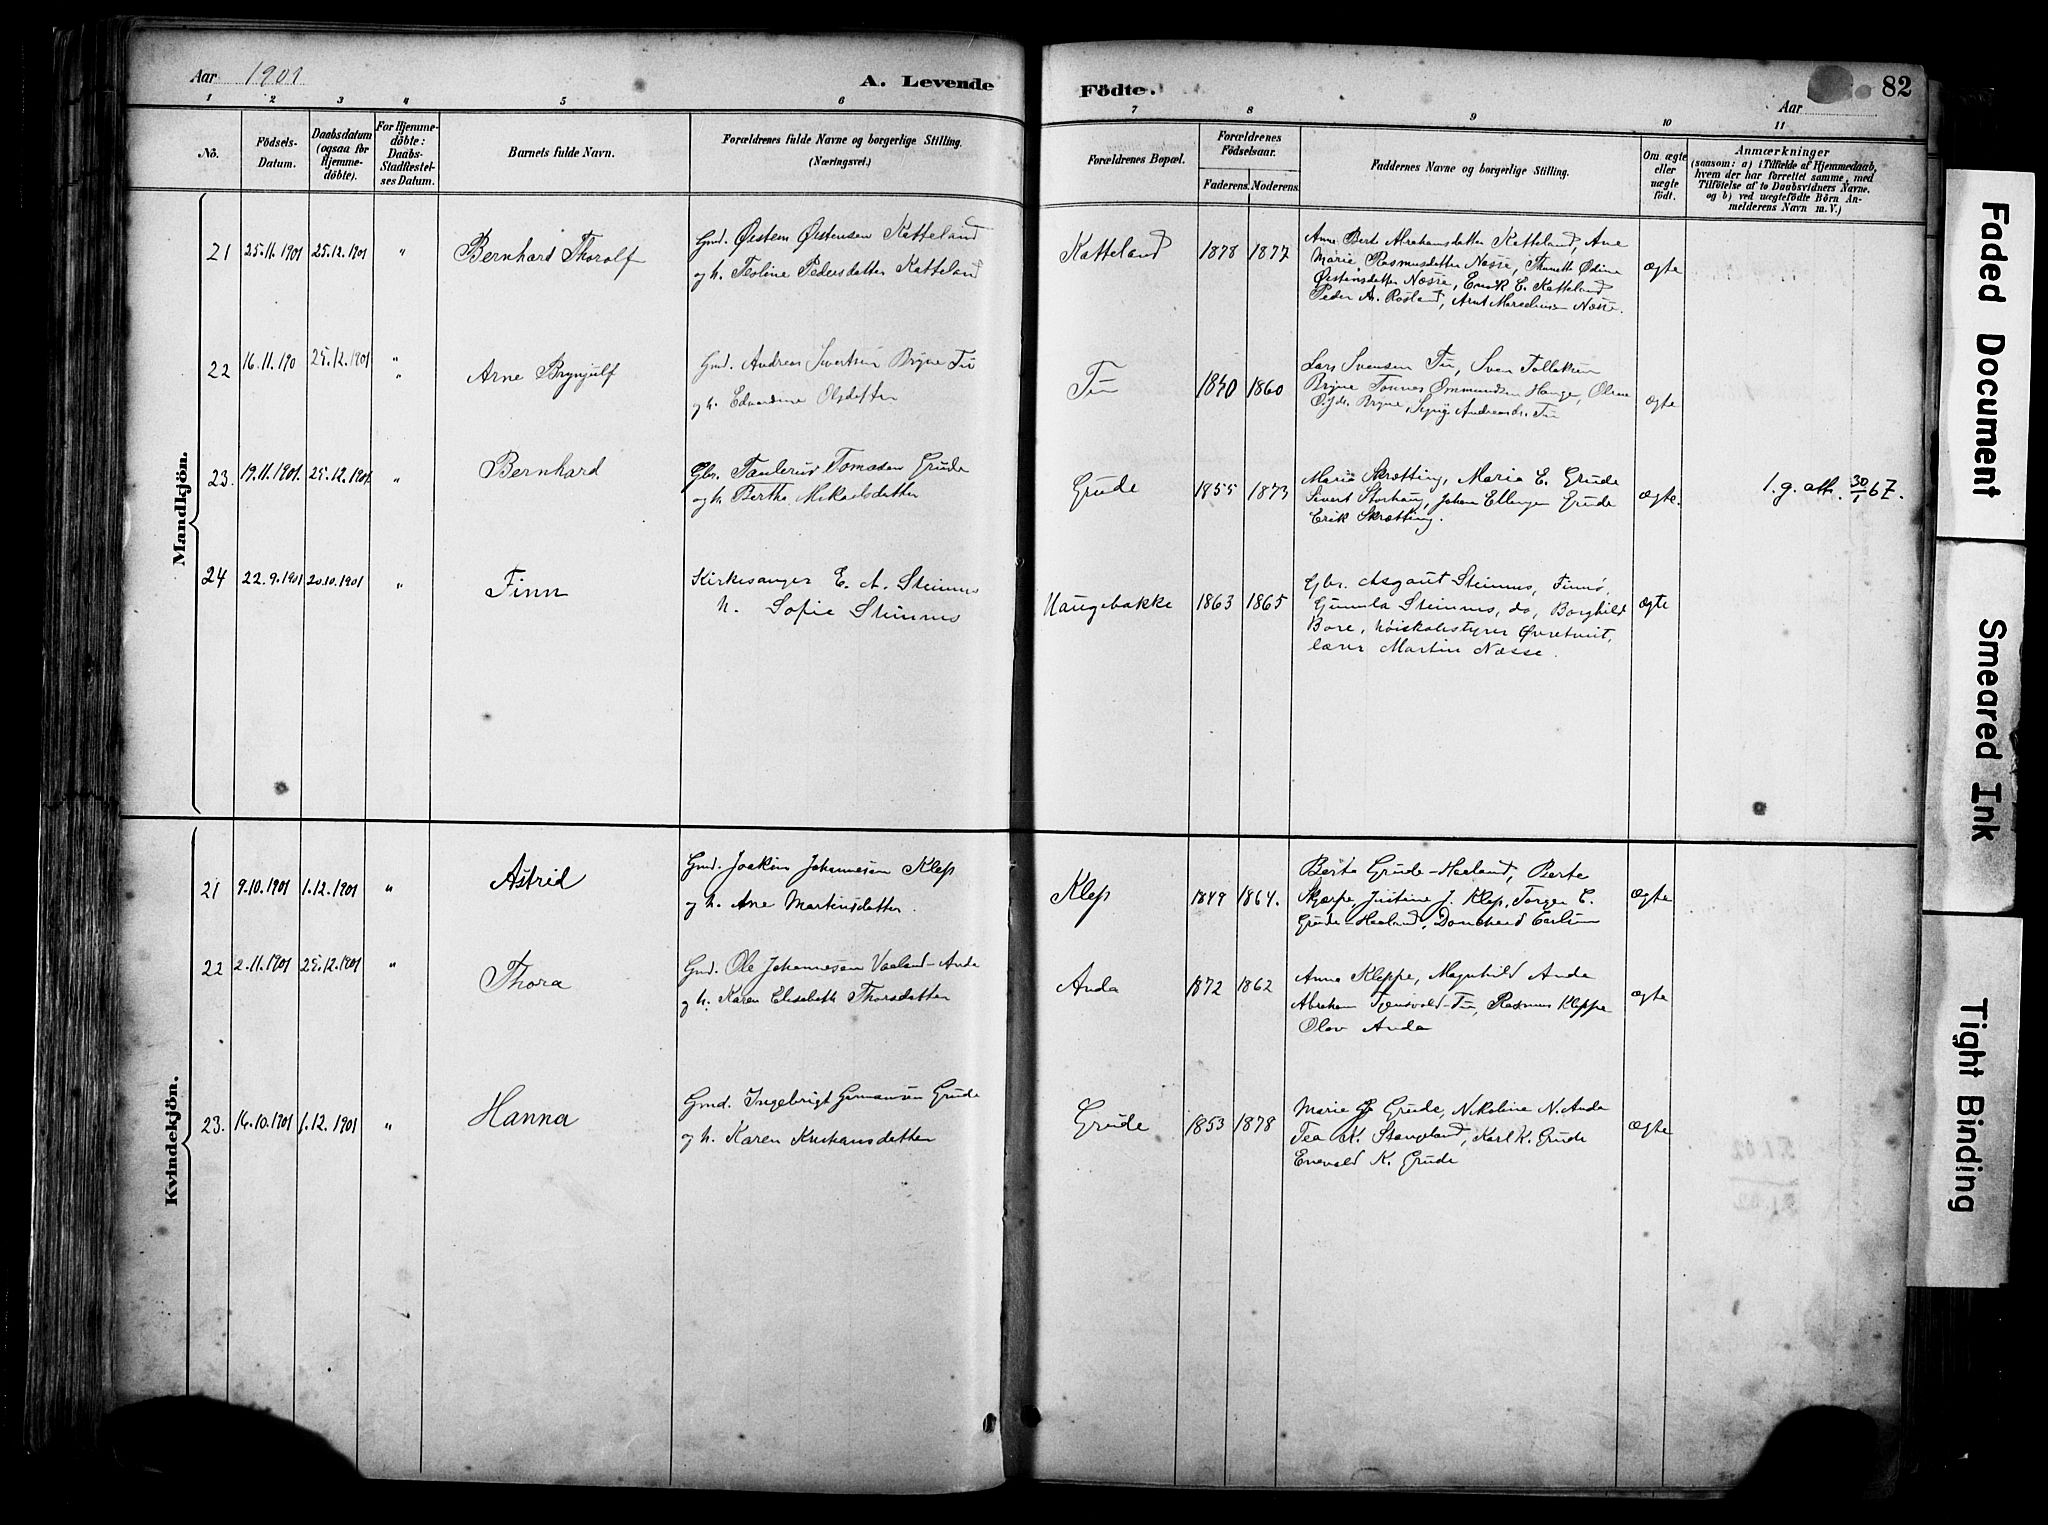 Aar 1901
A. Levende
Födte.
Aar
82
1 2 3 4 5 6 7 8 9 10 11
No.
Födsels-
Datum.
Daabsdatum
(ogsaa for
Hjemme-
döbte).
For Hjemme-
döbte:
Daabs-
Stadfæstel-
ses Datum.
Barnets fulde Navn.
Forældrenes fulde Navne og borgerlige Stilling.
(Næringsvei.)
Forældrenes Bopæl.
Forældrenes
Födselsaar.
Faderens. Moderens.
Faddernes Navne og borgerlige Stilling.
Om ægte
eller
uægte
födt.
Anmærkninger
(saasom: a) i Tilfælde af Hjemmedaab,
hvem der har forrettet samme, med
Tilföielse af to Daabsvidners Navne.
og b) ved uægtefödte Börn An-
melderens Navn m. V.)
Mandkjön.
21 25.11.1901 25.12.1901 " Bernhard Thorolf
Gmd. Østen Østensen Katteland
og h. Teoline Pedersdatter Katteland
Katteland 1878 1877
Anne Berte Abrahamsdatter Katteland, Ane
Marie Rasmusdatter Næsse, Ødine
Østensdatter Næsse, E. Katteland
Peder A. Rosland, Arnt Marselius Næsse.
ægte
22 16.11.190 25.12.1901 " " Arne Brynjulf
Gmd. Andreas Sivertsen Bryne Tu
og h. Edvardine Olsdatter
Tu 1840 1860
Lars Svensen Tu, Sven Tollaksen
Bryne Tønnes Ommundsen Hauge, Oline
Bryne, Andreasdr. Tu
ægte
23. 19.11.1901. 25.12.1901 " Bernhard
Gbr. Taulerus Tomasen Grude
og h. Berthe Mikaelsdatter
Grude 1855 1873
Maria Skrætting, Maria E. Grude
Sivert Storhaug, Johan Ellingsen Grude
Erik Skrætting.
ægte.
l. g. att. 30/1 67.
24 22.9.1901 20.10.1901 " Finn
Kirkesanger E. A. Steinnes
h. Sofie Steinnes
Haugebakke 1863 1865
Gbr. Asgaut Steinnes, Finnø,
Gunnla Steinnes, do, Borghild
Bore, høiskolestyrer Øvretveit,
lærer Martin Næsse.
ægte
Kvindekjön.
21 9.10.1901 1.12.1901 " Astrid
Gmd. Joakim Johannesen Klep
og h. Ane Martinsdatter.
Klep 1849 1864.
Berta Grude-Haaland, Berte
Skjærpe, Justine J. Klep, Torger E.
Grude-Haaland,
ægte
22 2.11.1901 25.12.1901 " Thora
Gmd. Ole Johannesen Vaaland-Anda
og h. Karen Elisabeth Thorsdatter
Anda 1872 1862
Anna Kleppe, Magnhild Anda
Abraham Tjensvold-Tu, Rasmus Kleppe
Olav Anda
ægte
23. 14.10.1901 1.12.1901 " Hanna
Gmd. Ingebrigt Germansen Grude
og h. Karen Kristiansdatter
Grude 1853 1878
Marie G Grude, Nikoline N. Anda
Tea K. Stangeland, Karl K. Grude
Enevald K. Grude
ægte
Faded Document
Smeared Ink
Tight Binding